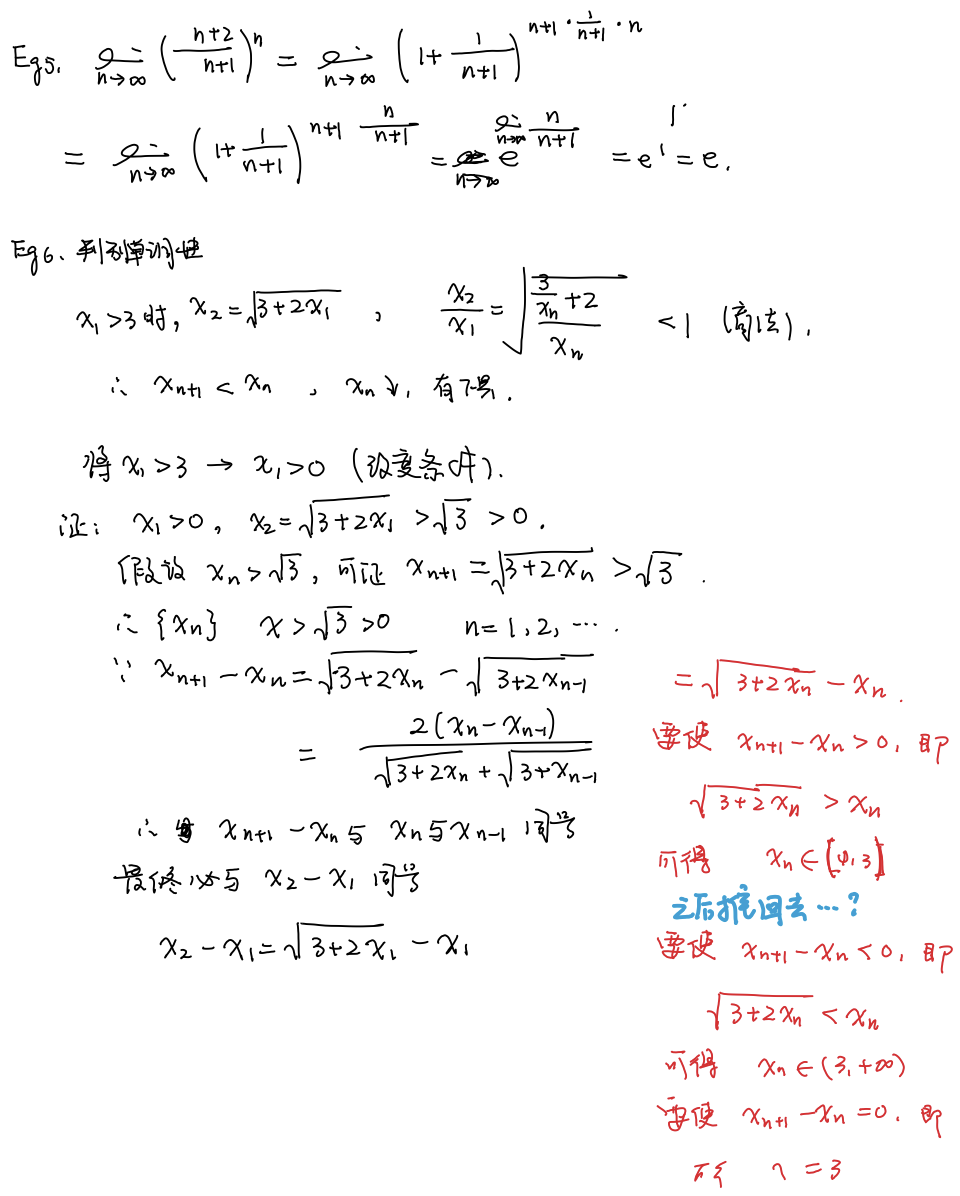 Eg5. lim n→∞ (n+2 / n+1)^n = lim n→∞ (1 + 1/(n+1))^(n+1 · 1/(n+1) · n)
= lim n→∞ (1 + 1/(n+1))^(n+1 · n/(n+1)) = e^(lim n→∞ n/(n+1)) = e^1 = e.
Eg6. 判别单调性
x₁>3时, x₂=√(3+2x₁) , x₂/x₁ = √((3/xₙ + 2)/xₙ) < 1 (商法).
∴ xₙ₊₁ < xₙ , xₙ↓, 有下界.
将 x₁>3 → x₁>0 (改变条件).
证: x₁>0, x₂=√(3+2x₁) >√3 >0.
假设 xₙ>√3, 可证 xₙ₊₁ =√(3+2xₙ) >√3 .
∴ {xₙ} x>√3>0 n=1,2,….
∵ xₙ₊₁ - xₙ = √(3+2xₙ) - √(3+2xₙ₋₁)
= 2(xₙ-xₙ₋₁) / (√(3+2xₙ) + √(3+xₙ₋₁))
∴ xₙ₊₁ - xₙ与 xₙ与xₙ₋₁ 同号
最终 必与 x₂-x₁ 同号
x₂-x₁=√(3+2x₁) - x₁
=√(3+2xₙ) - xₙ.
要使 xₙ₊₁-xₙ>0, 即
√(3+2xₙ) > xₙ
可得 xₙ∈ , 3
之后推回去…?
要使 xₙ₊₁-xₙ<0, 即
√(3+2xₙ) < xₙ
可得 xₙ∈(3,+∞)
要使 xₙ₊₁-xₙ=0. 即
=3